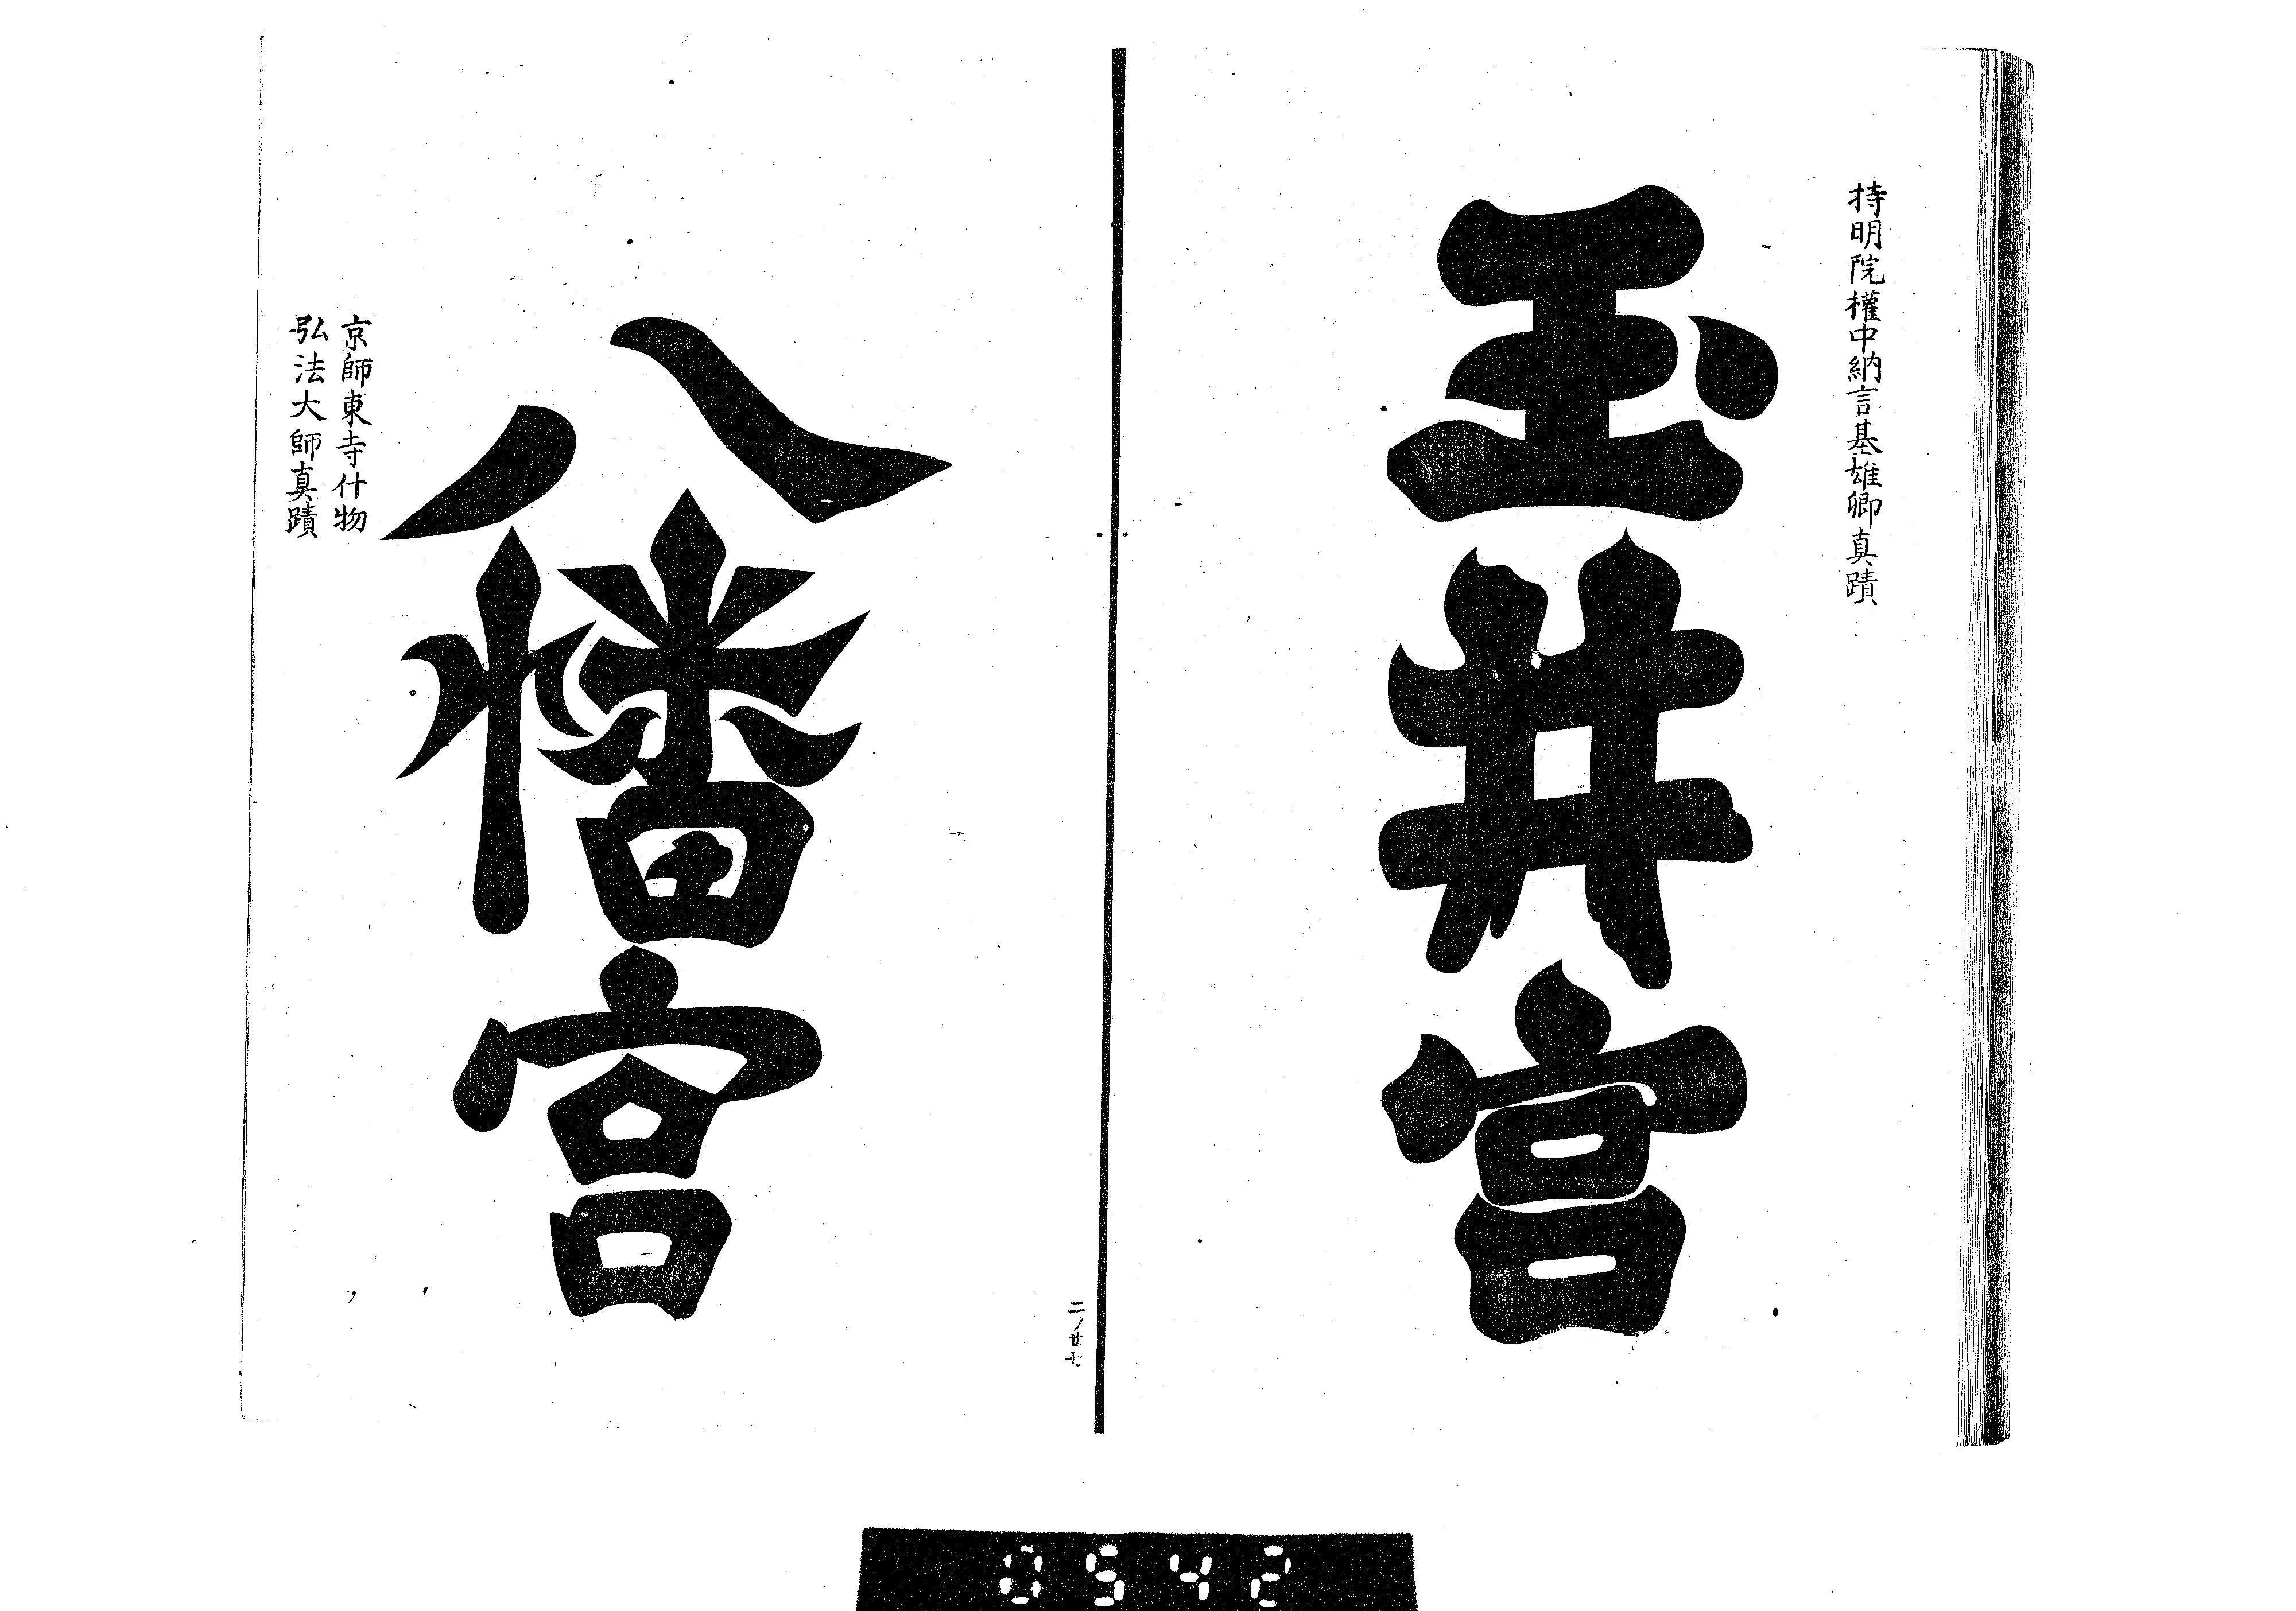 持明院權中納言基雄卿真蹟
玉井宮
二ノ廿七
八幡宮
京師東寺什物
弘法大師真蹟
0542